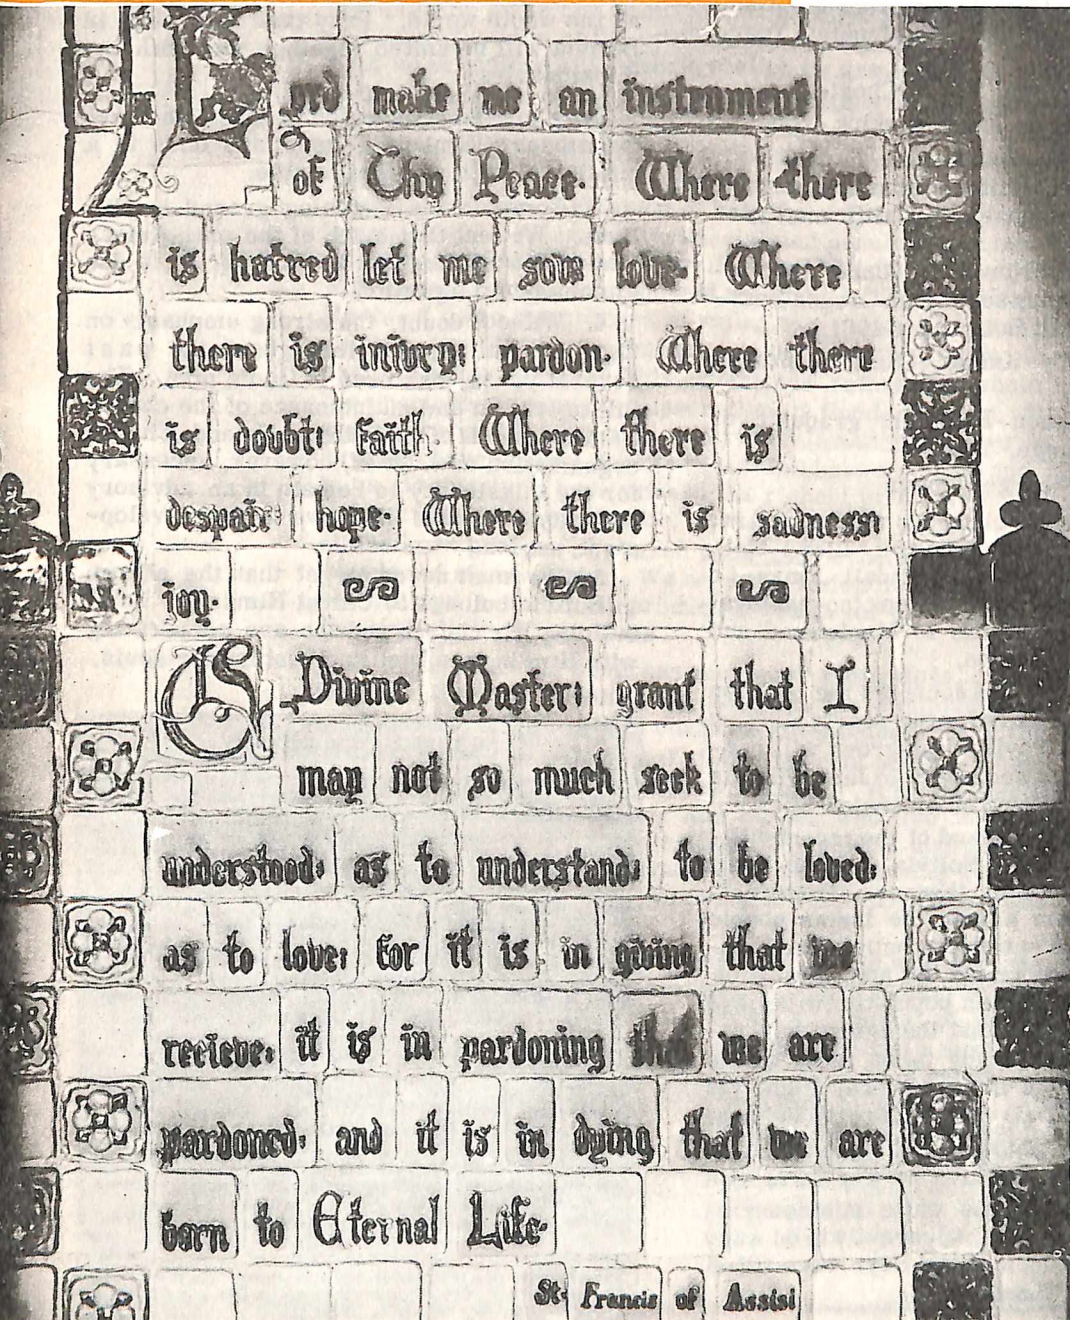 Lord make me an instrument
of Thy Peace. Where there
is hatred let me sow love. Where
there is injury: pardon. Where there
is doubt: faith. Where there is
despair: hope. Where there is sadness
joy.
O Divine Master: grant that I
may not so much seek to be
understood: as to understand: to be loved:
as to love: for it is in giving that we
recieve: it is in pardoning that we are
pardoned: and it is in dying that we are
born to Eternal Life.
St. Francis of Assisi